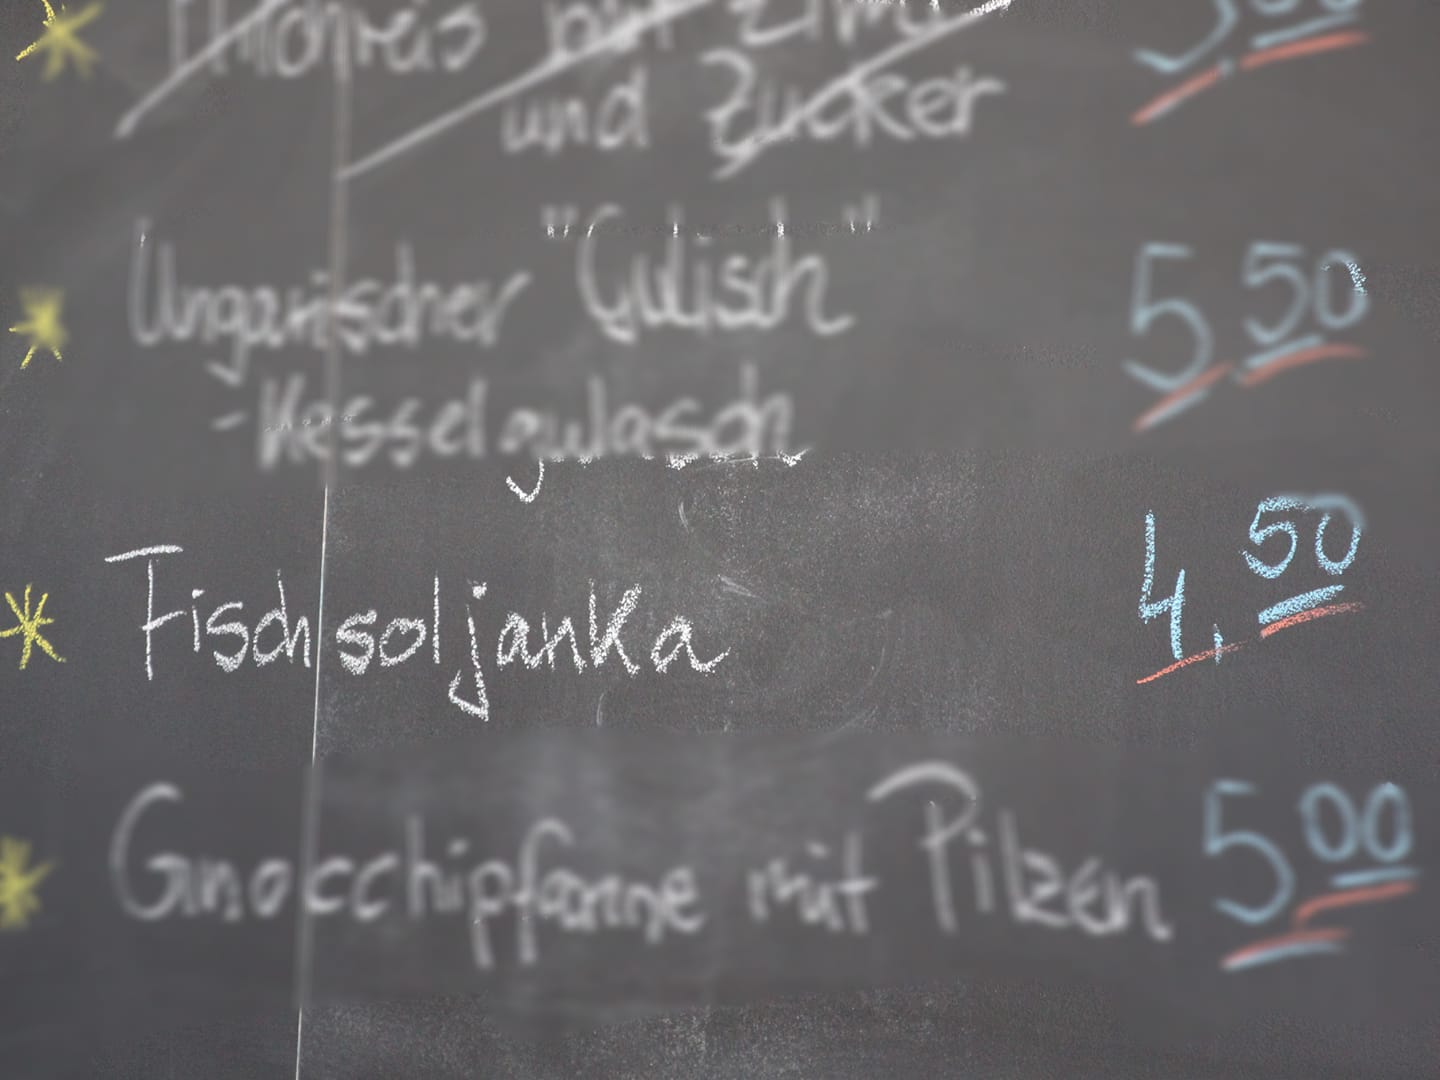 Milchreis mit Zimt 5,00
und Zucker
Ungarischer "Gulisch" 5,50
- Kesselgulasch
Fischsoljanka 4,50
Gnocchipfanne mit Pilzen 5,00